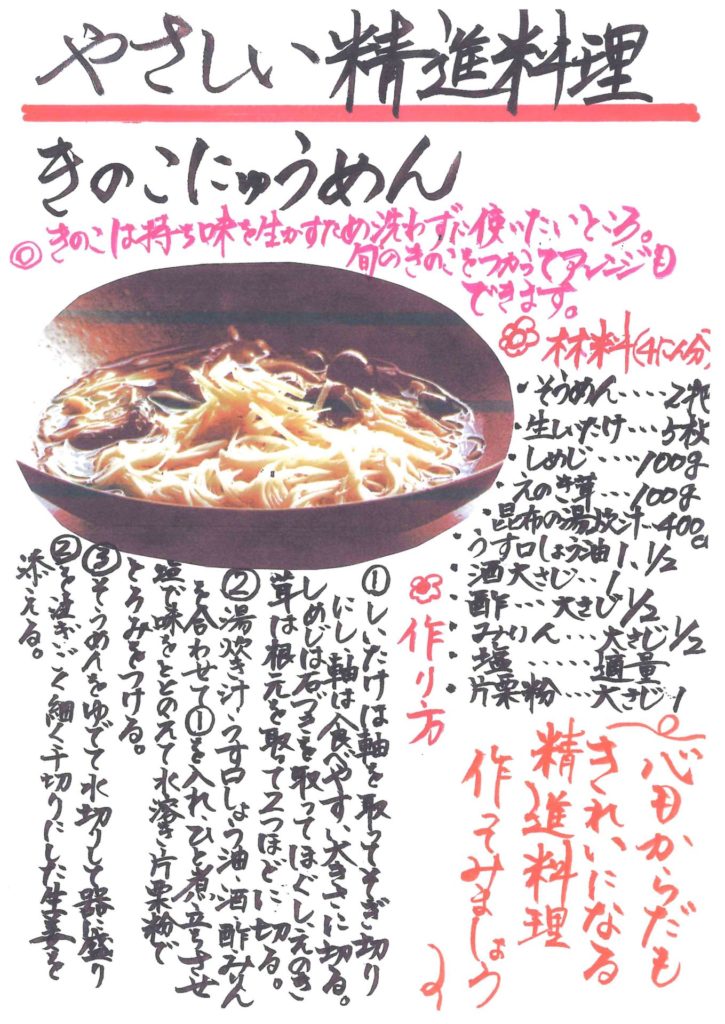 やさしい精進料理
きのこにゅうめん
◎きのこは持ち味を生かすため洗わずに使いたいところ。
旬のきのこをつかってアレンジも
できます。
材料(4人分)
・そうめん‥‥2把
・生しいたけ‥‥5枚
・しめじ‥‥100g
・えのき茸‥‥100g
・昆布の湯炊汁‥400cc
・うす口しょう油 1、1/2
・酒大さじ‥‥1
・酢‥‥大さじ1/2
・みりん‥‥大さじ1/2
・塩‥‥‥適量
・片栗粉‥‥大さじ1
作り方
①しいたけは軸を取ってそぎ切り
にし、軸は食べやすい大きさに切る。
しめじは石づきを取ってほぐし、えのき
茸は根元を取って2つほどに切る。
②湯炊き汁・うす口しょう油・酒・酢・みりん
を合わせて①を入れ、ひと煮立ちさせ
塩で味をととのえて水溶き片栗粉で
とろみをつける。
③そうめんをゆでて水切りして器に盛り
②を注ぎ、ごく細く千切りにした生姜を
添える。
心もからだも
きれいになる
精進料理
作ってみましょう